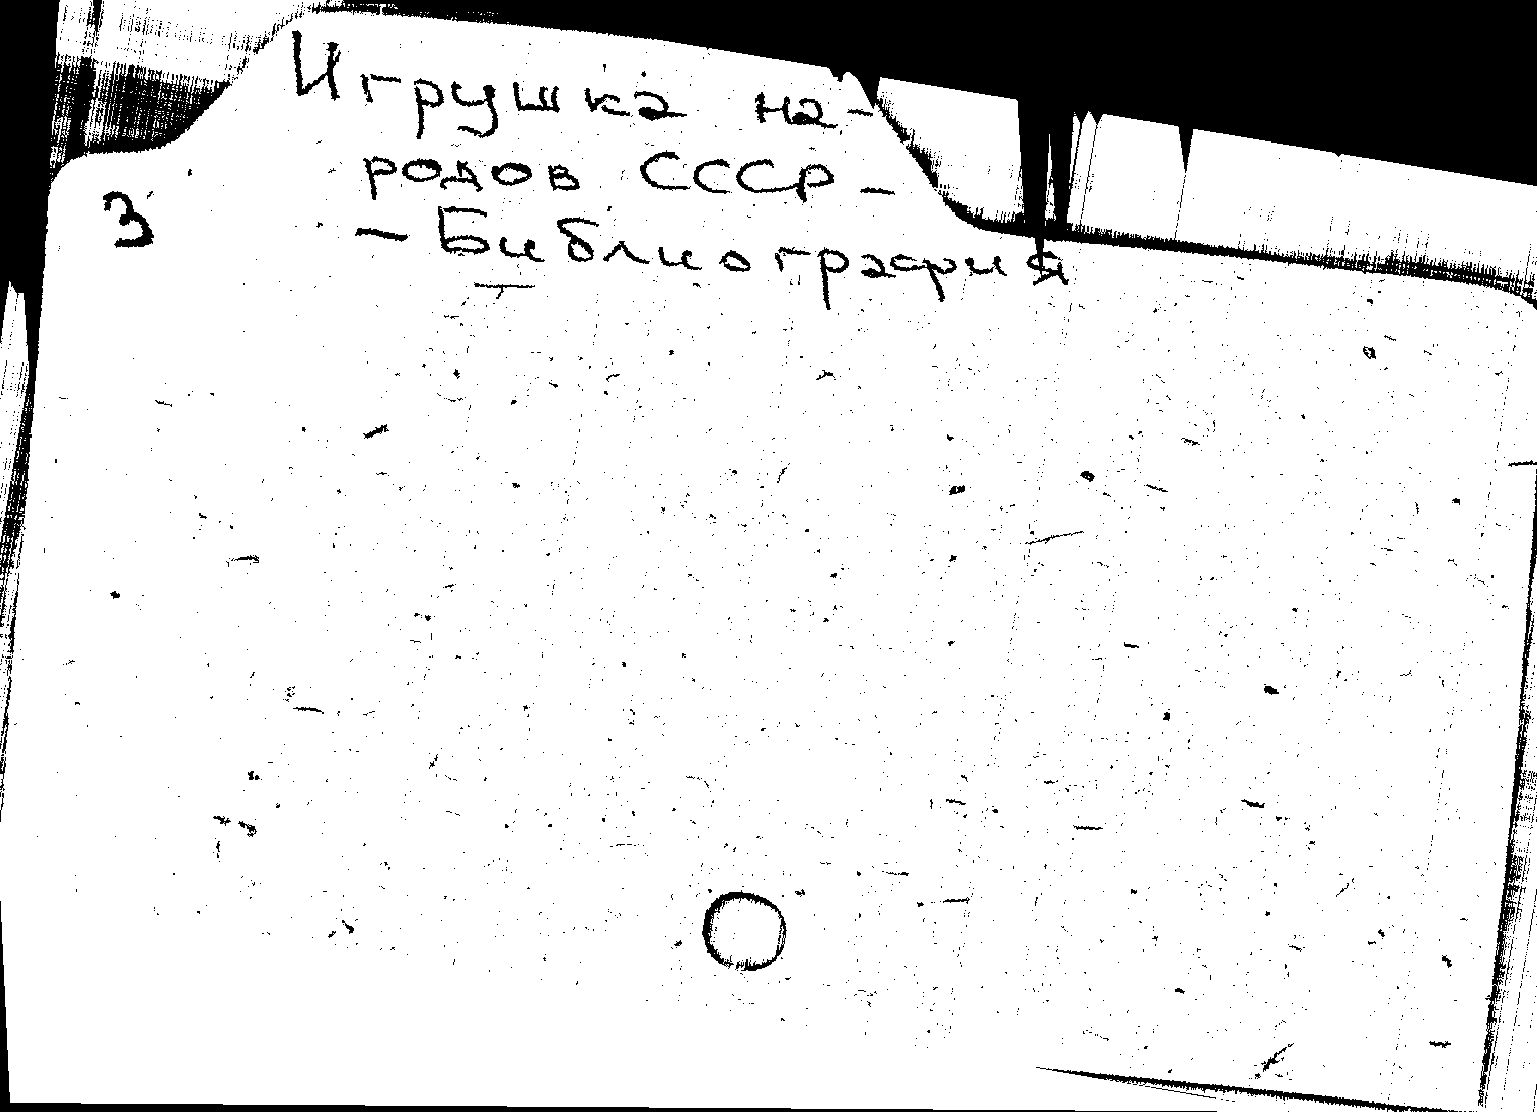 Игрушка на-
родов СССР -
3
- Библиография